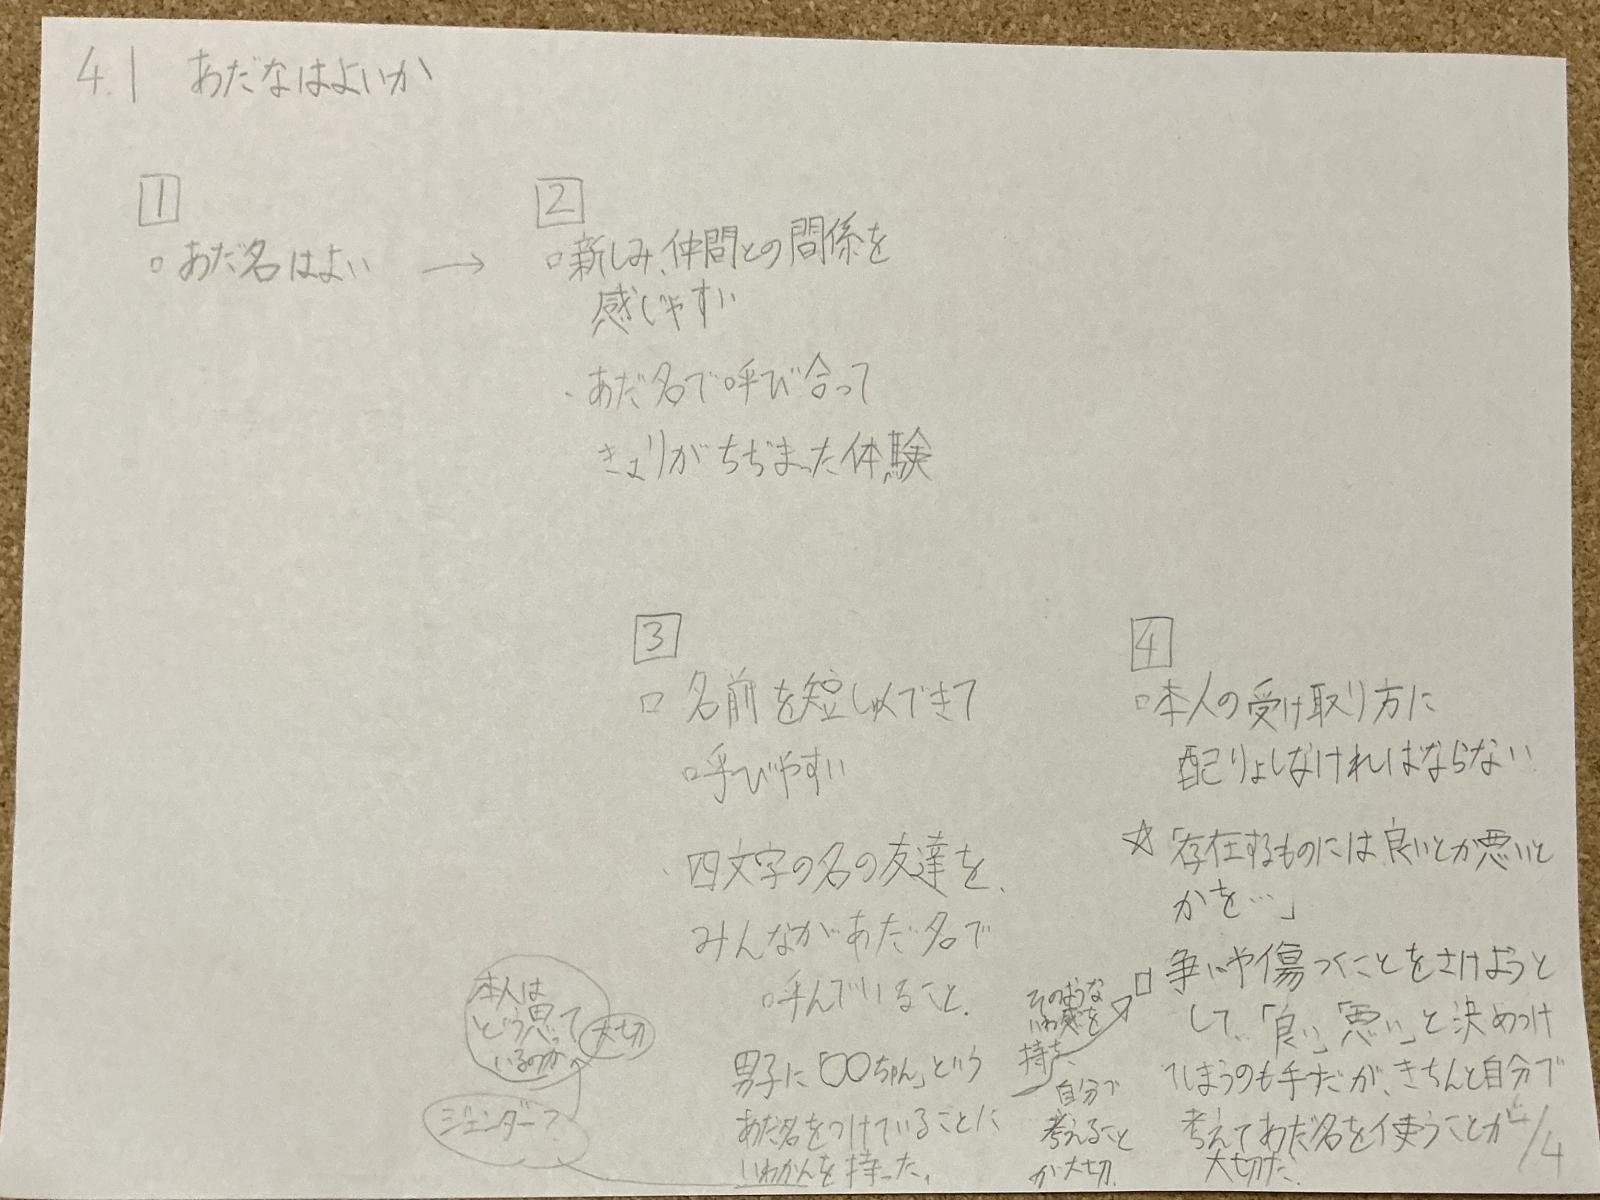 4.1 あだなはよいか
1
□あだ名はよい →
2
□新しみ、仲間との間係を
感じやすい
・あだ名で呼び合って
きょりがちぢまった体験
3
□ 名前を短しゅくできて
呼びやすい
・四文字の名の友達を、
みんながあだ名で
呼んでいること。
男子に「〇〇ちゃん」という
あだ名をつけていることに
いわかんを持った。
ジェンダー?
本人は
どう思って
いるのか
大切
4
□本人の受け取り方に
配りょしなければならない
☆「存在するものには良いとか悪いと
かを…」
□争いや傷つくことをさけようと
して、「良い」「悪い」と決めつけ
てしまうのも手だが、きちんと自分で
考えてあだ名を使うことが
大切だ。
そのような
いわ感を
持ち、
自分で
考えること
が大切。
4/4